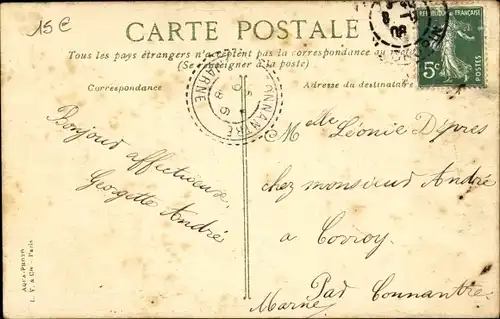 15 €
CARTE POSTALE
Tous les pays étrangers n'acceptent pas la correspondance au
(Se renseigner à la poste)
Correspondance
Adresse du destinataire
REPUBLIQUE FRANÇAISE
5c
POSTES
CONNANTRE
MARNE
Bonjour affectueuse,
Georgette André
Melle Léonie Dépres
chez monsieur André
a Corroy
Par Connantre
Marne
AQUA-PHOTO
L. V. & Cie - Paris